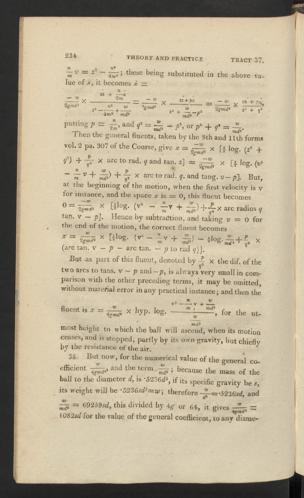 234 THEORY AND PRACTICE TRACT 37.
n/m v = z² − n²/4m²; these being substituted in the above va-
lue of ẋ, it becomes ẋ =
putting p = n/2m, and q² = w/md² − p², or p² + q² = w/md².
Then the general fluents, taken by the 8th and 11th forms
vol. 2 pa. 307 of the Course, give x = −w/2gmd² × [½ log. (z² +
q²) + p/q² × arc to rad. q and tan. z] = −w/2gmd² × [½ log. (v²
− n/m v + w/md²) + p/q² × arc to rad. q. and tang. v − p]. But,
at the beginning of the motion, when the first velocity is v
for instance, and the space x is = 0, this fluent becomes
0 = −w/2gmd² × [½log. (v² − n/m v + w/md²) + p/q² × arc radius q
tan. v − p]. Hence by subtraction, and taking v = 0 for
the end of the motion, the correct fluent becomes
x = w/2gmd² × [½log. (v² − n/m v + w/md²) − ½log. w/md² + p/q² ×
(arc tan. v − p − arc tan. − p to rad q)].
But as part of this fluent, denoted by p/q² × the dif. of the
two arcs to tans. v − p and − p, is always very small in com-
parison with the other preceding terms, it may be omitted,
without material error in any practical instance; and then the
fluent is x = w/4gmd² × hyp. log. (v² − n/m v + w/md²)/(w/md²), for the ut-
most height to which the ball will ascend, when its motion
ceases, and is stopped, partly by its own gravity, but chiefly
by the resistance of the air.
But now, for the numerical value of the general co-
efficient w/4gmd², and the term w/md²; because the mass of the
ball to the diameter d, is ·5236d³, if its specific gravity be s,
its weight will be ·5236sd³ = w; therefore w/d² = ·5236sd, and
w/md² = 69259sd, this divided by 4g or 64, it gives w/4gmd² =
1082sd for the value of the general coefficient, to any diame-